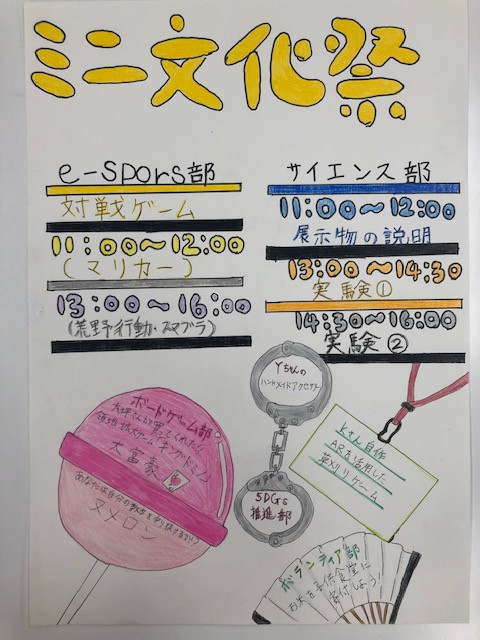 ミニ文化祭
e-spors部
対戦ゲーム
11:00~12:00
(マリカー)
13:00~16:00
(荒野行動・スマブラ)
サイエンス部
11:00~12:00
展示物の説明
13:00~14:30
実験①
14:30~16:00
実験②
Yちゃんの
ハンドメイドアクセサリー
SDGs
推進部
Kさん自作
ARを活用した
草刈りゲーム
ボードゲーム部
大富豪
ヌメロン
ボランティア部
お米を子供食堂に
寄付しよう!